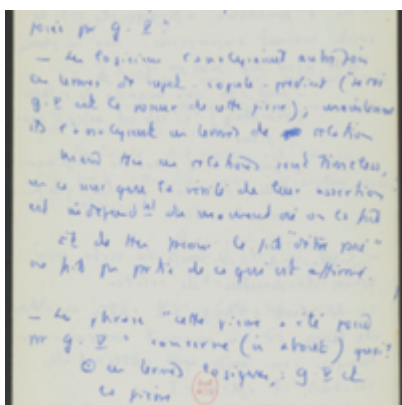 posée par g. V ?
— Les logiciens l'analysaient autrefois
en termes de sujet - copule - prédicat (
g. V est le poseur de cette pierre), maintenant
ils l'analysent en termes de relation
relations sont timeless,
en ce sens que la vérité de leur assertion
est indépendt du moment où on le fait
"été posé"
ne fait pas partie de ce qui est affirmé.
— La phrase "cette pierre a été posée
par g. V" concerne (is about) quoi?
en termes logiques : g V et
la pierre